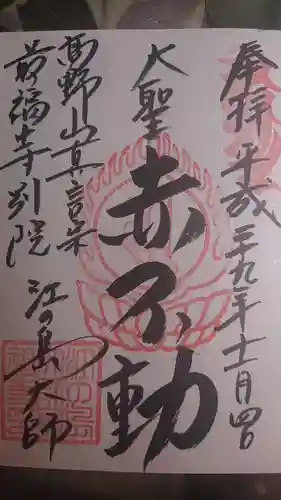 奉拝 平成二十九年十一月四日
大聖
赤不動
高野山真言宗
最福寺別院 江の島大師